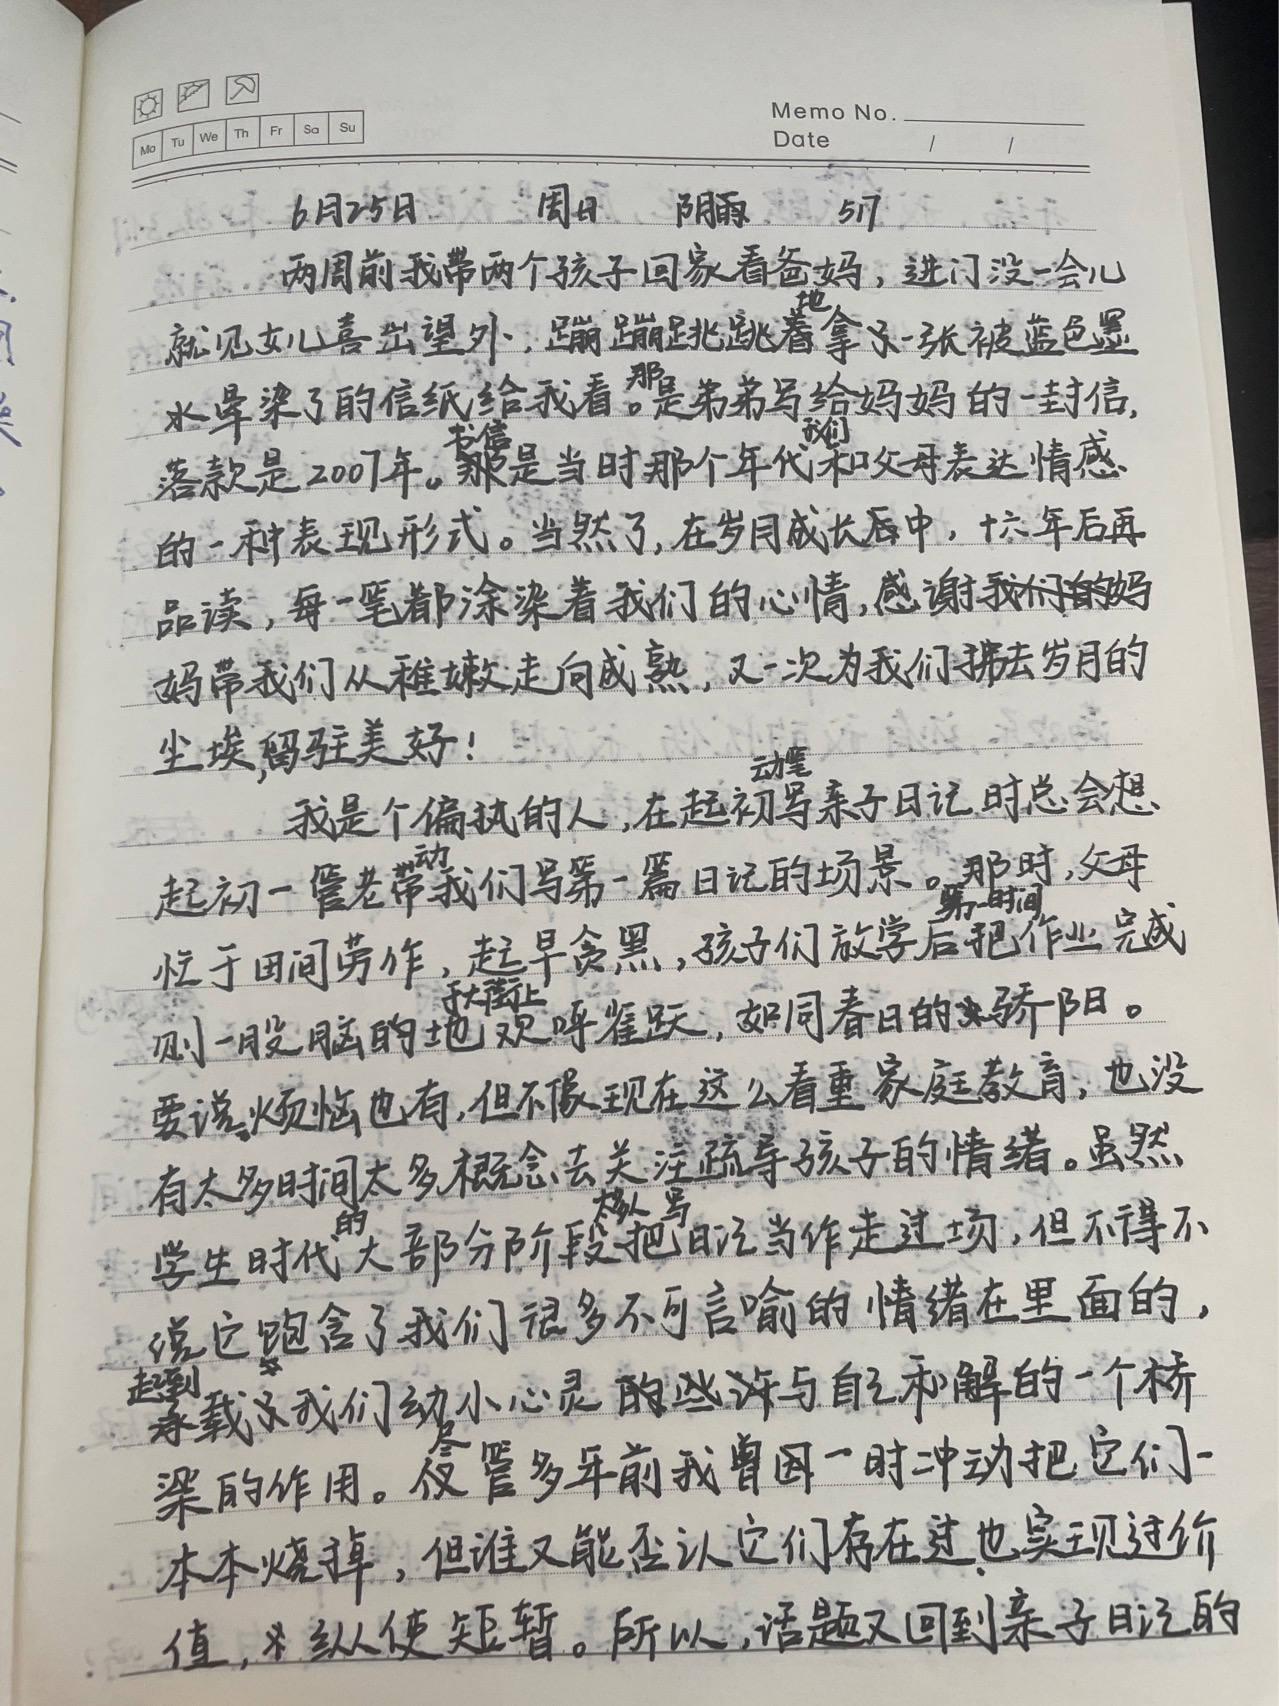 Mo Tu We Th Fr Sa Su
Memo No.
Date / /
6月25日 周日 阴雨 517
两周前我带两个孩子回家看爸妈，进门没一会儿
就见女儿喜出望外，蹦蹦跳跳地拿了一张被蓝色墨
水晕染了的信纸给我看。那是弟弟写给妈妈的一封信，
落款是2007年。书信是当时那个年代我们和父母表达情感
的一种表现形式。当然了，在岁月成长后中，十六年后再
品读，每一笔都涂染着我们的心情，感谢妈
妈带我们从稚嫩走向成熟，又一次为我们拂去岁月的
尘埃，留驻美好！
我是个偏执的人，在起初动笔写亲子日记时总会想
起初一管老带动我们写第一篇日记的场景。那时，父母
忙于田间劳作，起早贪黑，孩子们放学后第一时间把作业完成
则一股脑的地于大街上欢呼雀跃，如同春日的骄阳。
要说烦恼也有，但不像现在这么看重家庭教育，也没
有太多时间太多概念去关注疏导孩子的情绪。虽然
学生时代的大部分阶段大多人把写日记当作走过场，但不得不
说它饱含了我们很多不可言喻的情绪在里面的，
起到承载了我们幼小心灵的些许与自己和解的一个桥
梁的作用。尽管多年前我曾因一时冲动把它们一
本本烧掉，但谁又能否认它们存在过也实现过价
值，纵使短暂。所以，话题又回到亲子日记的